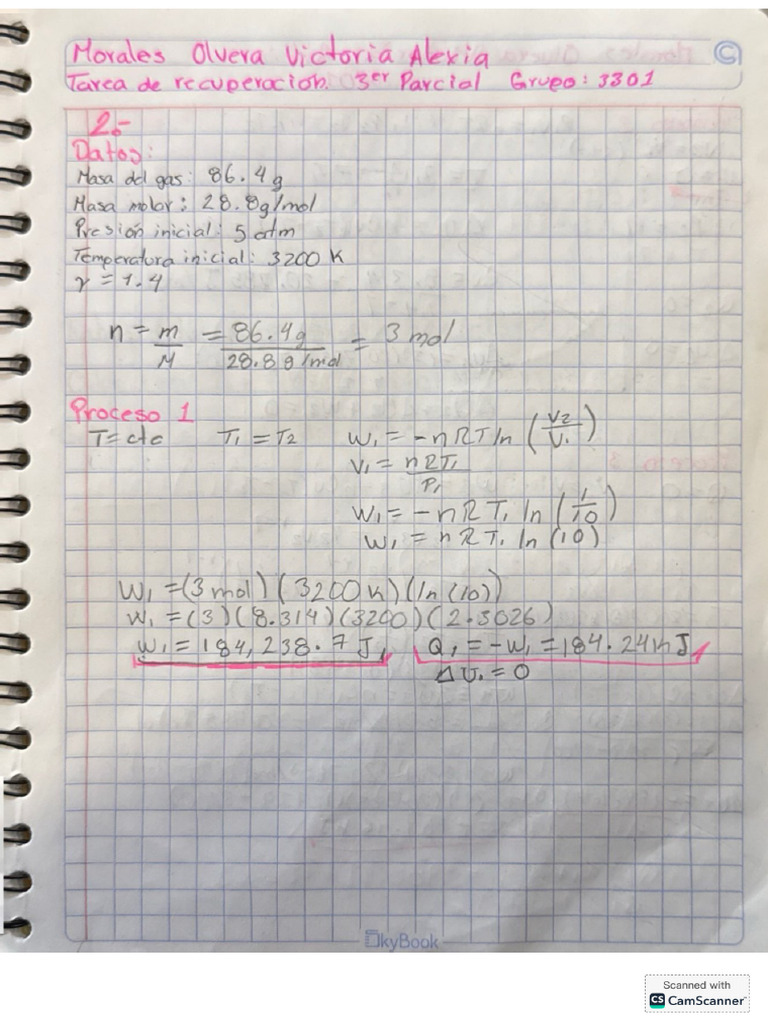 Morales Olvera Victoria Alexia
©
Tarea de recuperación. 3er Parcial Grupo: 3301
2.-
Datos:
Masa del gas: 86.4g
Masa molar: 28.8g/mol
Presión inicial: 5 atm
Temperatura inicial: 3200 K
γ = 1.4
n = m/M = 86.4g/28.8 g/mol = 3 mol
Proceso 1
T = cte T₁ = T₂ W₁ = -nRT ln (V₂/V₁)
V₁ = nRT₁/P₁
W₁ = -nRT₁ ln (1/10)
W₁ = nRT₁ ln (10)
W₁ = (3 mol)(3200K)(ln(10))
W₁ = (3)(8.314)(3200)(2.3026)
W₁ = 184,238.7 J, Q₁ = -W₁ = 184.24 kJ
ΔU₁ = 0
SkyBook
Scanned with
CS CamScanner